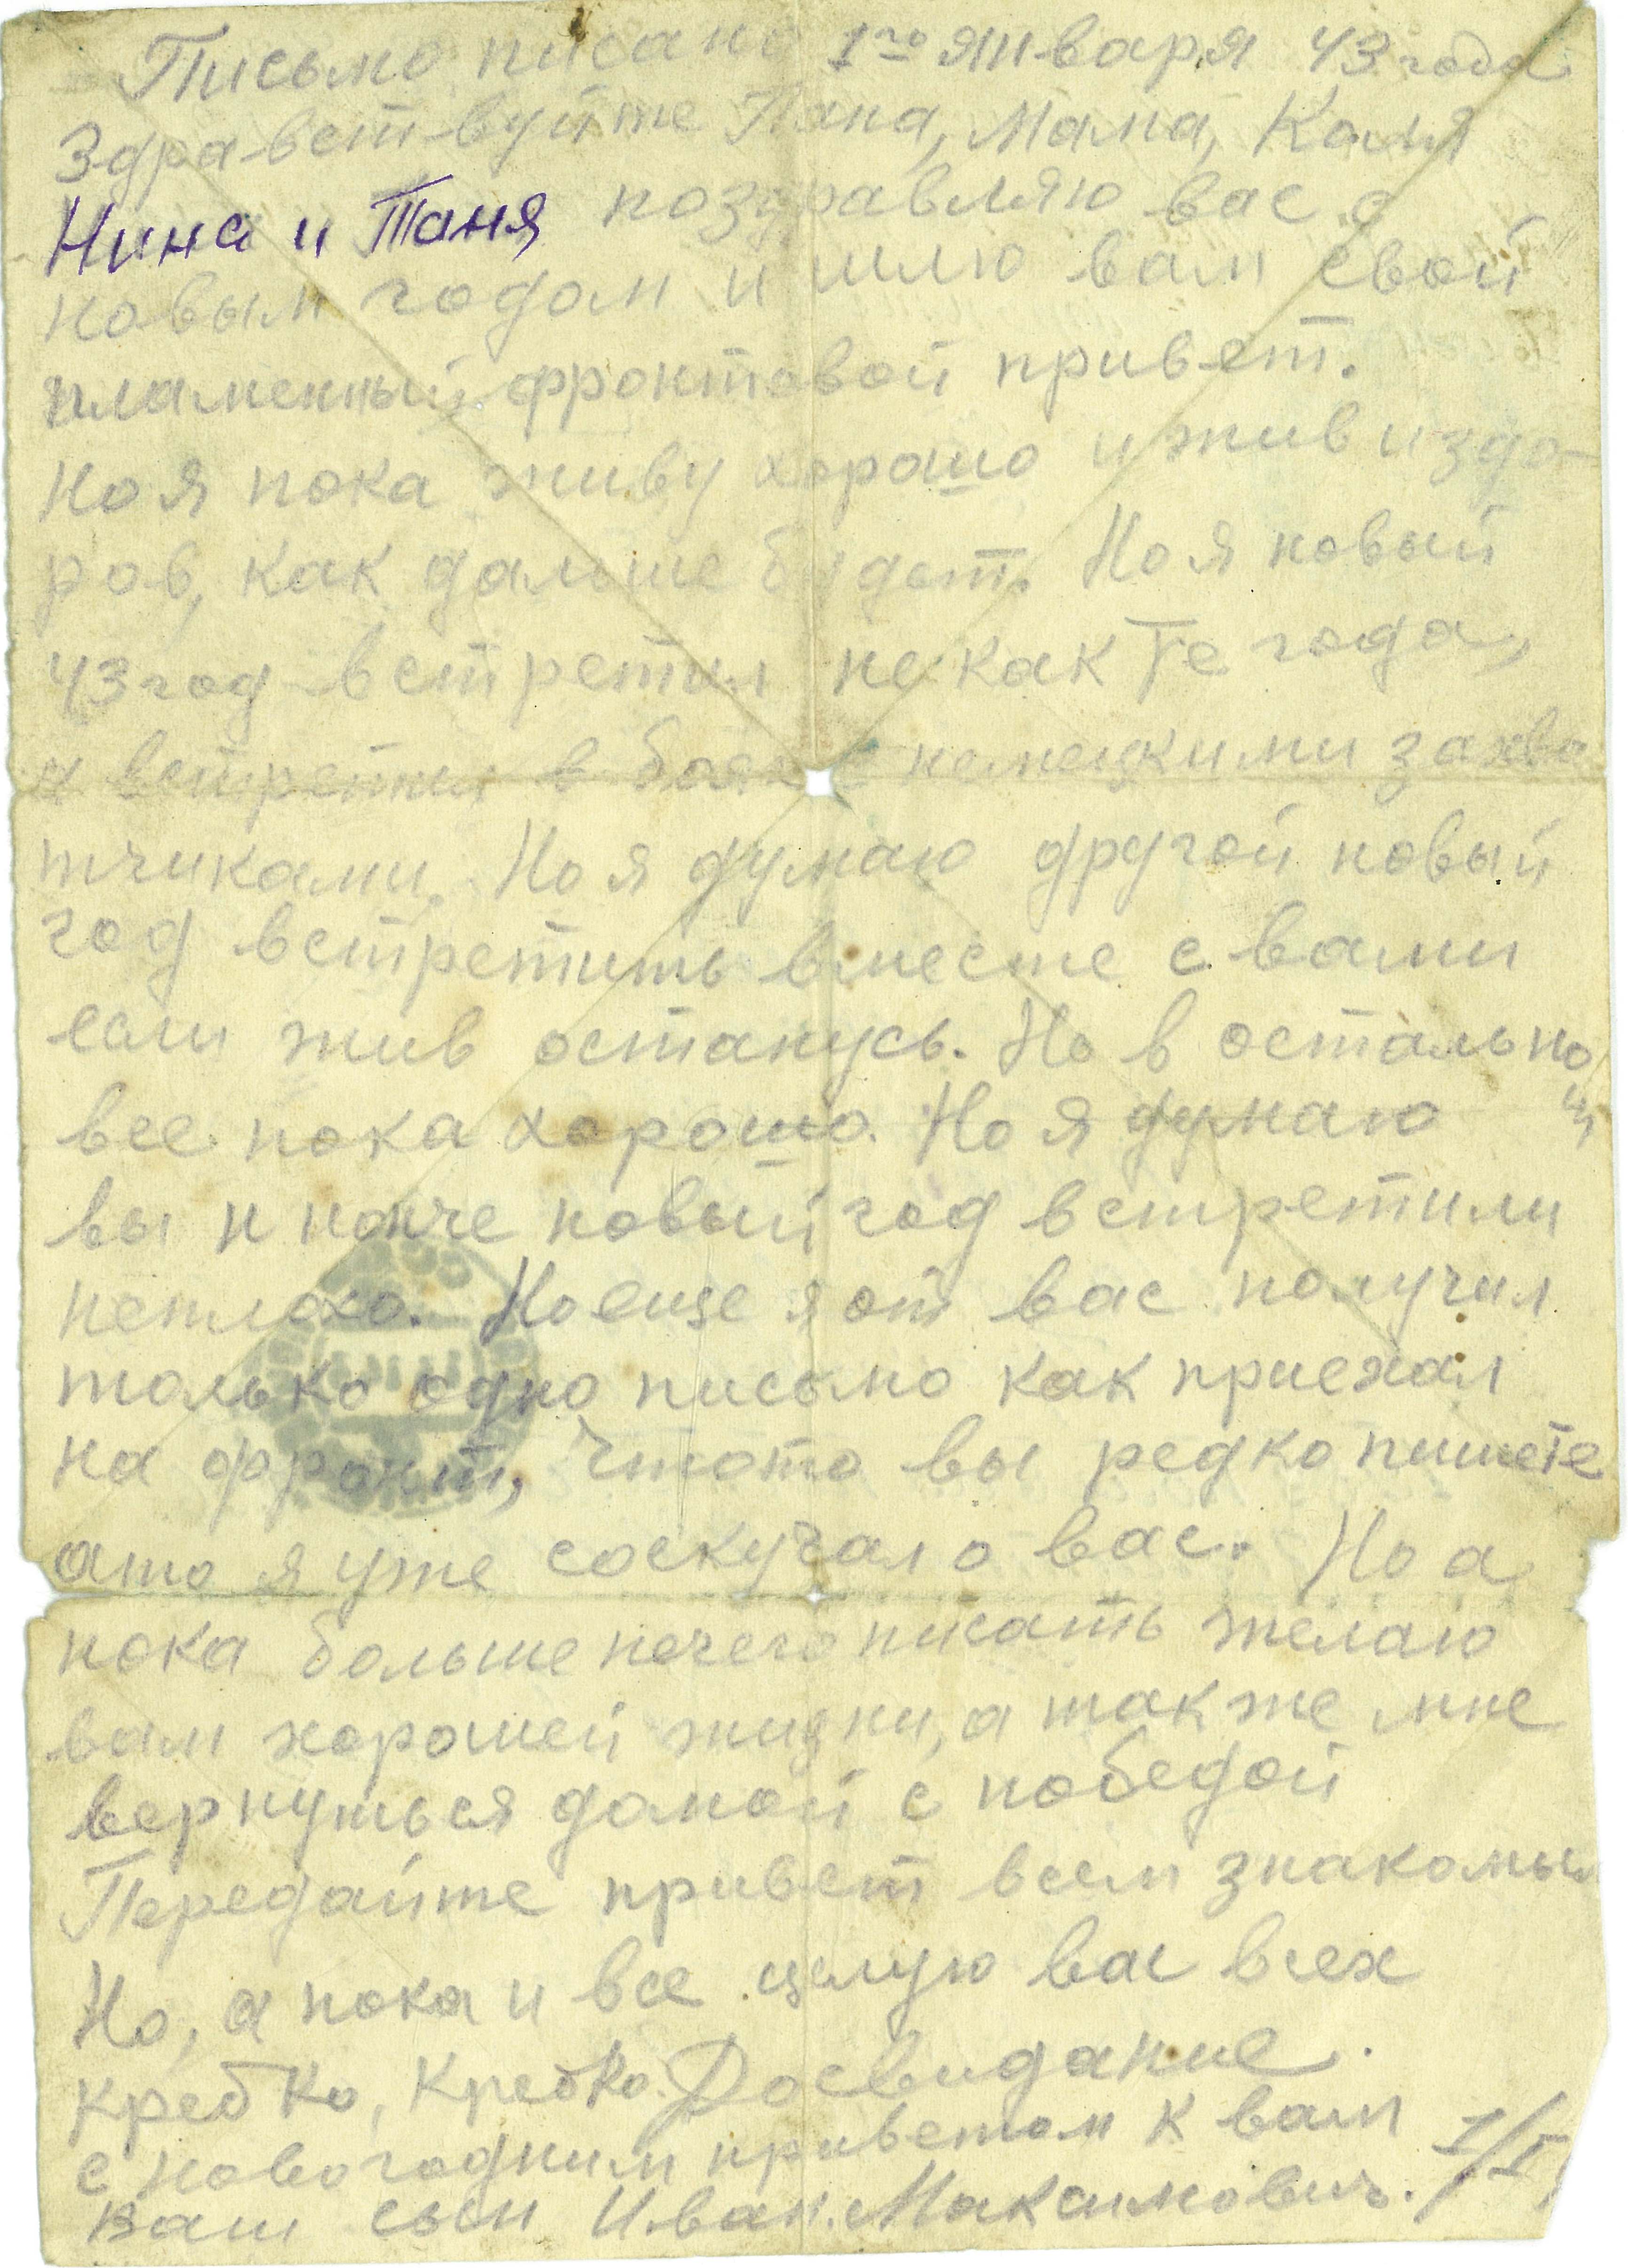 Письмо писано 1го января 43 года
Здраветвуйте Папа, Мама, Коля
Нина и Таня поздравляю вас с
новым годом и шлю вам свой
пламенный фронтовой привет.
Но я пока живу хорошо и жив издо-
ров, как дальше будет. Но я новый
43 год встретил не как те года,
а встретил в боях с немецкими захва
тчиками. Но я думаю другой новый
год встретить вместе с вами
если жив останусь. Но в остально
все пока хорошо. Но я думаю
вы и нонче новый год встретили
неплохо. Но еще я от вас получил
только одно письмо как приехал
на фронт, Чтото вы редко пишете
ато я уже соскучал о вас. Но а
пока больше нечего писать желаю
вам хорошей жизни, а также мне
вернуться домой с победой
Передайте привет всем знакомым
Но, а пока и все целую вас всех
кребко, кребко. Досвидание.
с новогодним приветом к вам
ваш сын Иван. Максимович. 1/I